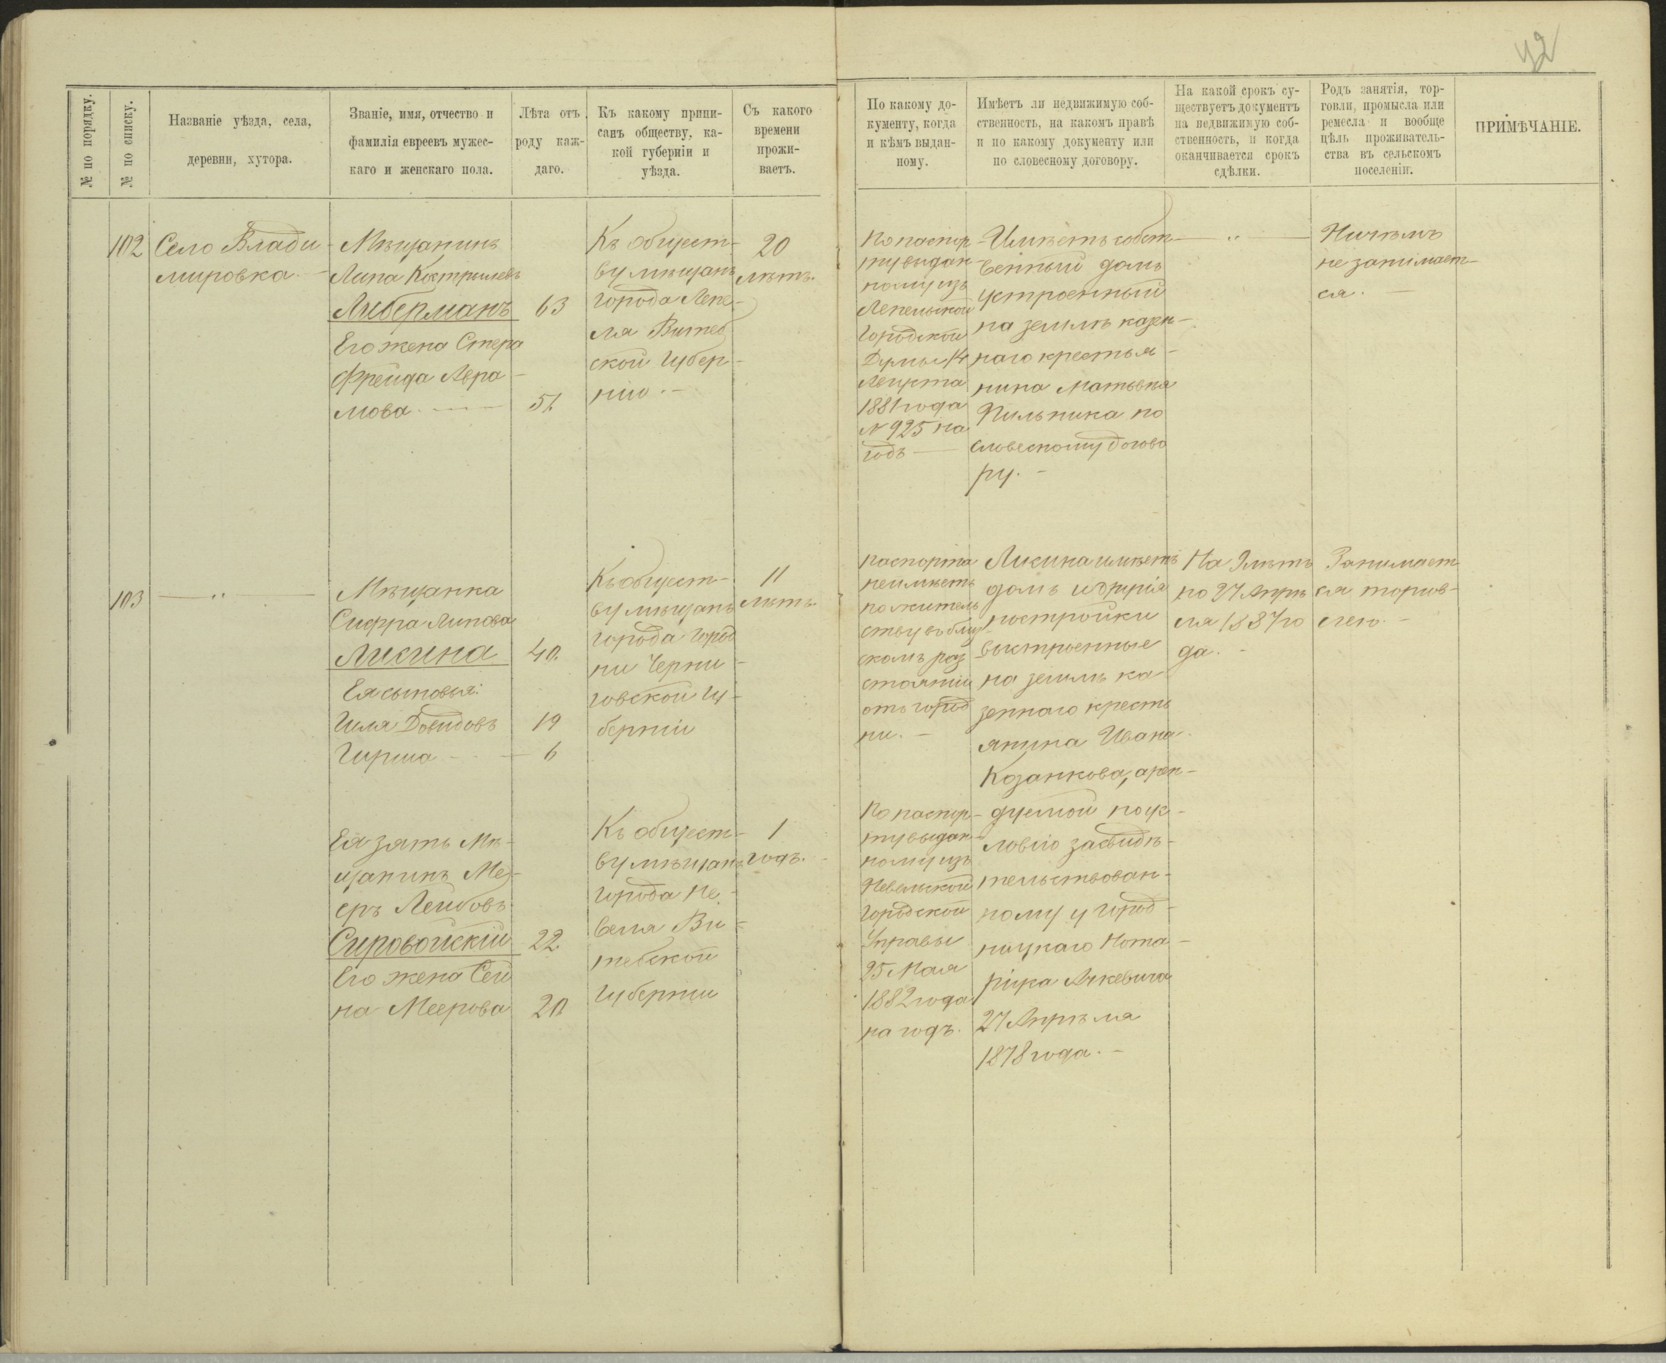 42
№ по порядку.
№ по списку.
Названіе уѣзда, села,
деревни, хутора.
Званіе, имя, отчество и
фамилія евреевъ мужес-
каго и женскаго пола.
Лѣта отъ
роду каж-
даго.
Къ какому припи-
санъ обществу, ка-
кой губерніи и
уѣзда.
Съ какого
времени
прожи-
ваетъ.
По какому до-
кументу, когда
и кѣмъ выдан-
ному.
Имѣетъ ли недвижимую соб-
ственность, на какомъ правѣ
и по какому документу или
по словесному договору.
На какой срокъ су-
ществуетъ документъ
на недвижимую соб-
ственность, и когда
оканчивается срокъ
сдѣлки.
Родъ занятія, тор-
говли, промысла или
ремесла и вообще
цѣль проживатель-
ства въ сельскомъ
поселеніи.
ПРИМѢЧАНІЕ.
102
Село Влади-
мировка. —
Мѣщанинъ
Липа
Либерманъ 63
Его жена Стера
Фрейда Абра-
мова. — 51
Къ общест-
ву мѣщанъ
города Лепе-
ля Витеб
ской Губер-
ніи. —
20
лѣтъ.
По паспор-
ту выдан-
ному изъ
Лепельской
Городской
Думы 14
Августа
1881 года
№ 925 на
годъ —
Имѣетъ собст-
венный домъ
устроенный
на землѣ казен-
наго крестья-
нина Матвѣя
Пильника по
словесному догово
ру. —
— " —
Ничѣмъ
не занимает-
ся. —
103
— " —
Мѣщанка
Сифра Липова
Лисина 40
Ея сыновья:
Гиля Давидовъ 19
Гирша — 6
Къ общест-
ву мѣщанъ
города Город
ни Черни-
говской Гу-
берніи
11
лѣтъ.
Паспорта
неимѣетъ
по житель
ству въ близ
комъ раз
стояніи
отъ Город
ни. —
Лисина имѣетъ
домъ и другія
постройки
выстроенные
на землѣ ка
зеннаго кресть
янина Ивана
Козанкова, арен-
дуемой по ус-
ловію засвидѣ-
тельствован-
ному у Город-
ницкаго Нота-
ріуса
27 Апрѣля
1878 года. —
На 9 лѣтъ
по 27 Апрѣ
ля 1887 го
да. —
Занимает
ся торгов-
лею. —
Ея зять Мѣ-
щанинъ Ме-
еръ Лейбовъ
Сировойскій 22
Его жена Сей
на Меерова 20
Къ общест-
ву мѣщанъ
города Не-
веля Ви-
тебской
Губерніи
1
годъ.
По паспор-
ту выдан-
ному изъ
Невельской
Городской
Управы
25 Мая
1882 года
на годъ.